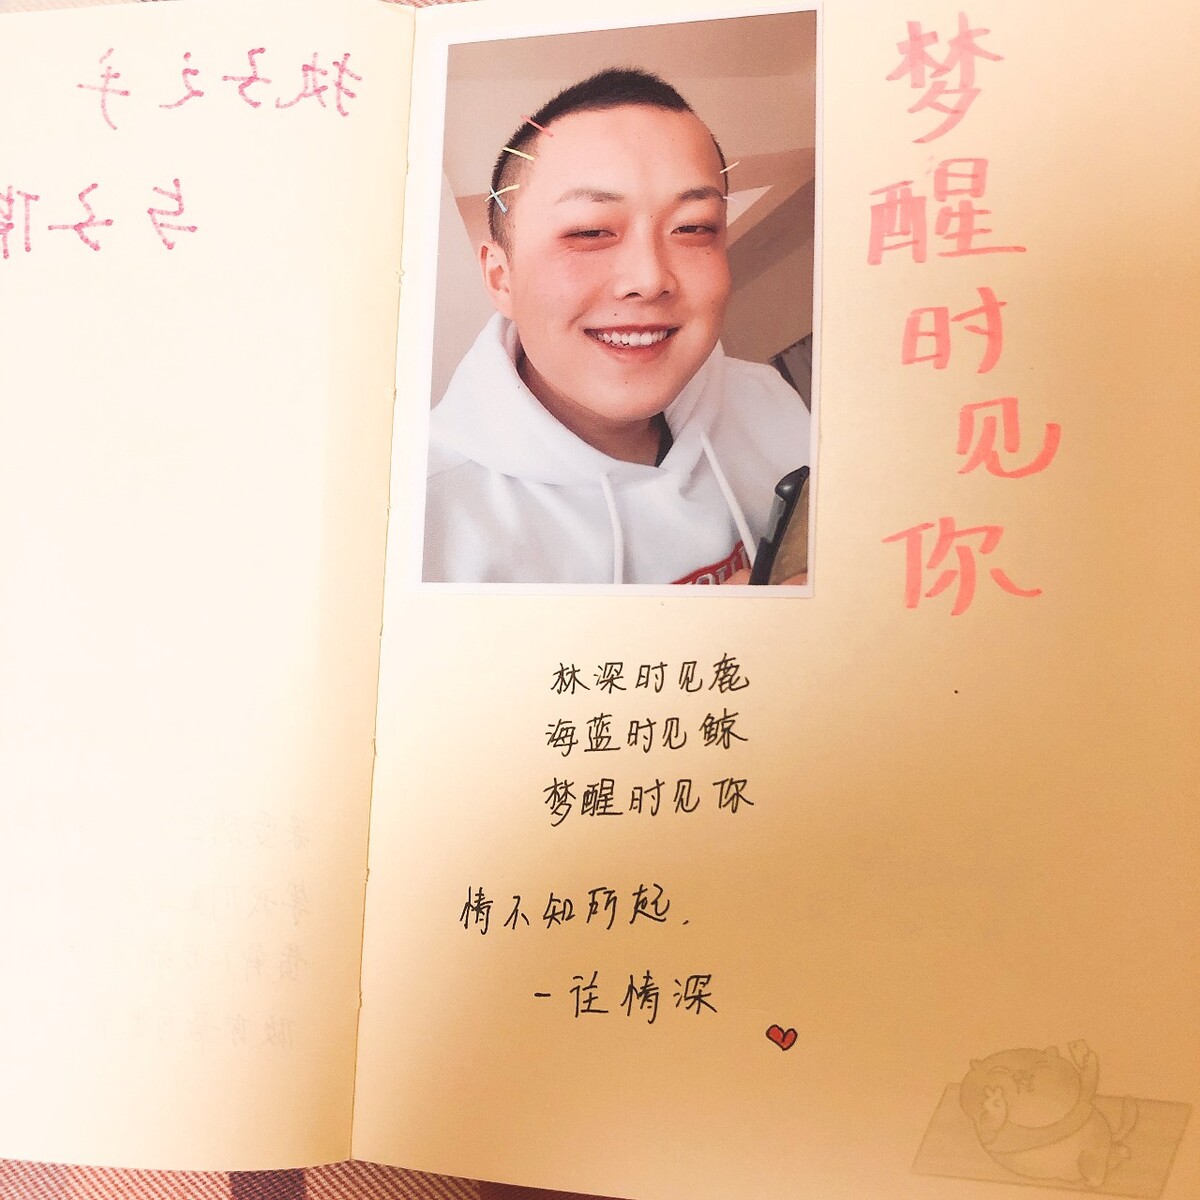 执子之手
与子偕
梦醒时见你
林深时见鹿
海蓝时见鲸
梦醒时见你
情不知所起，
一往情深